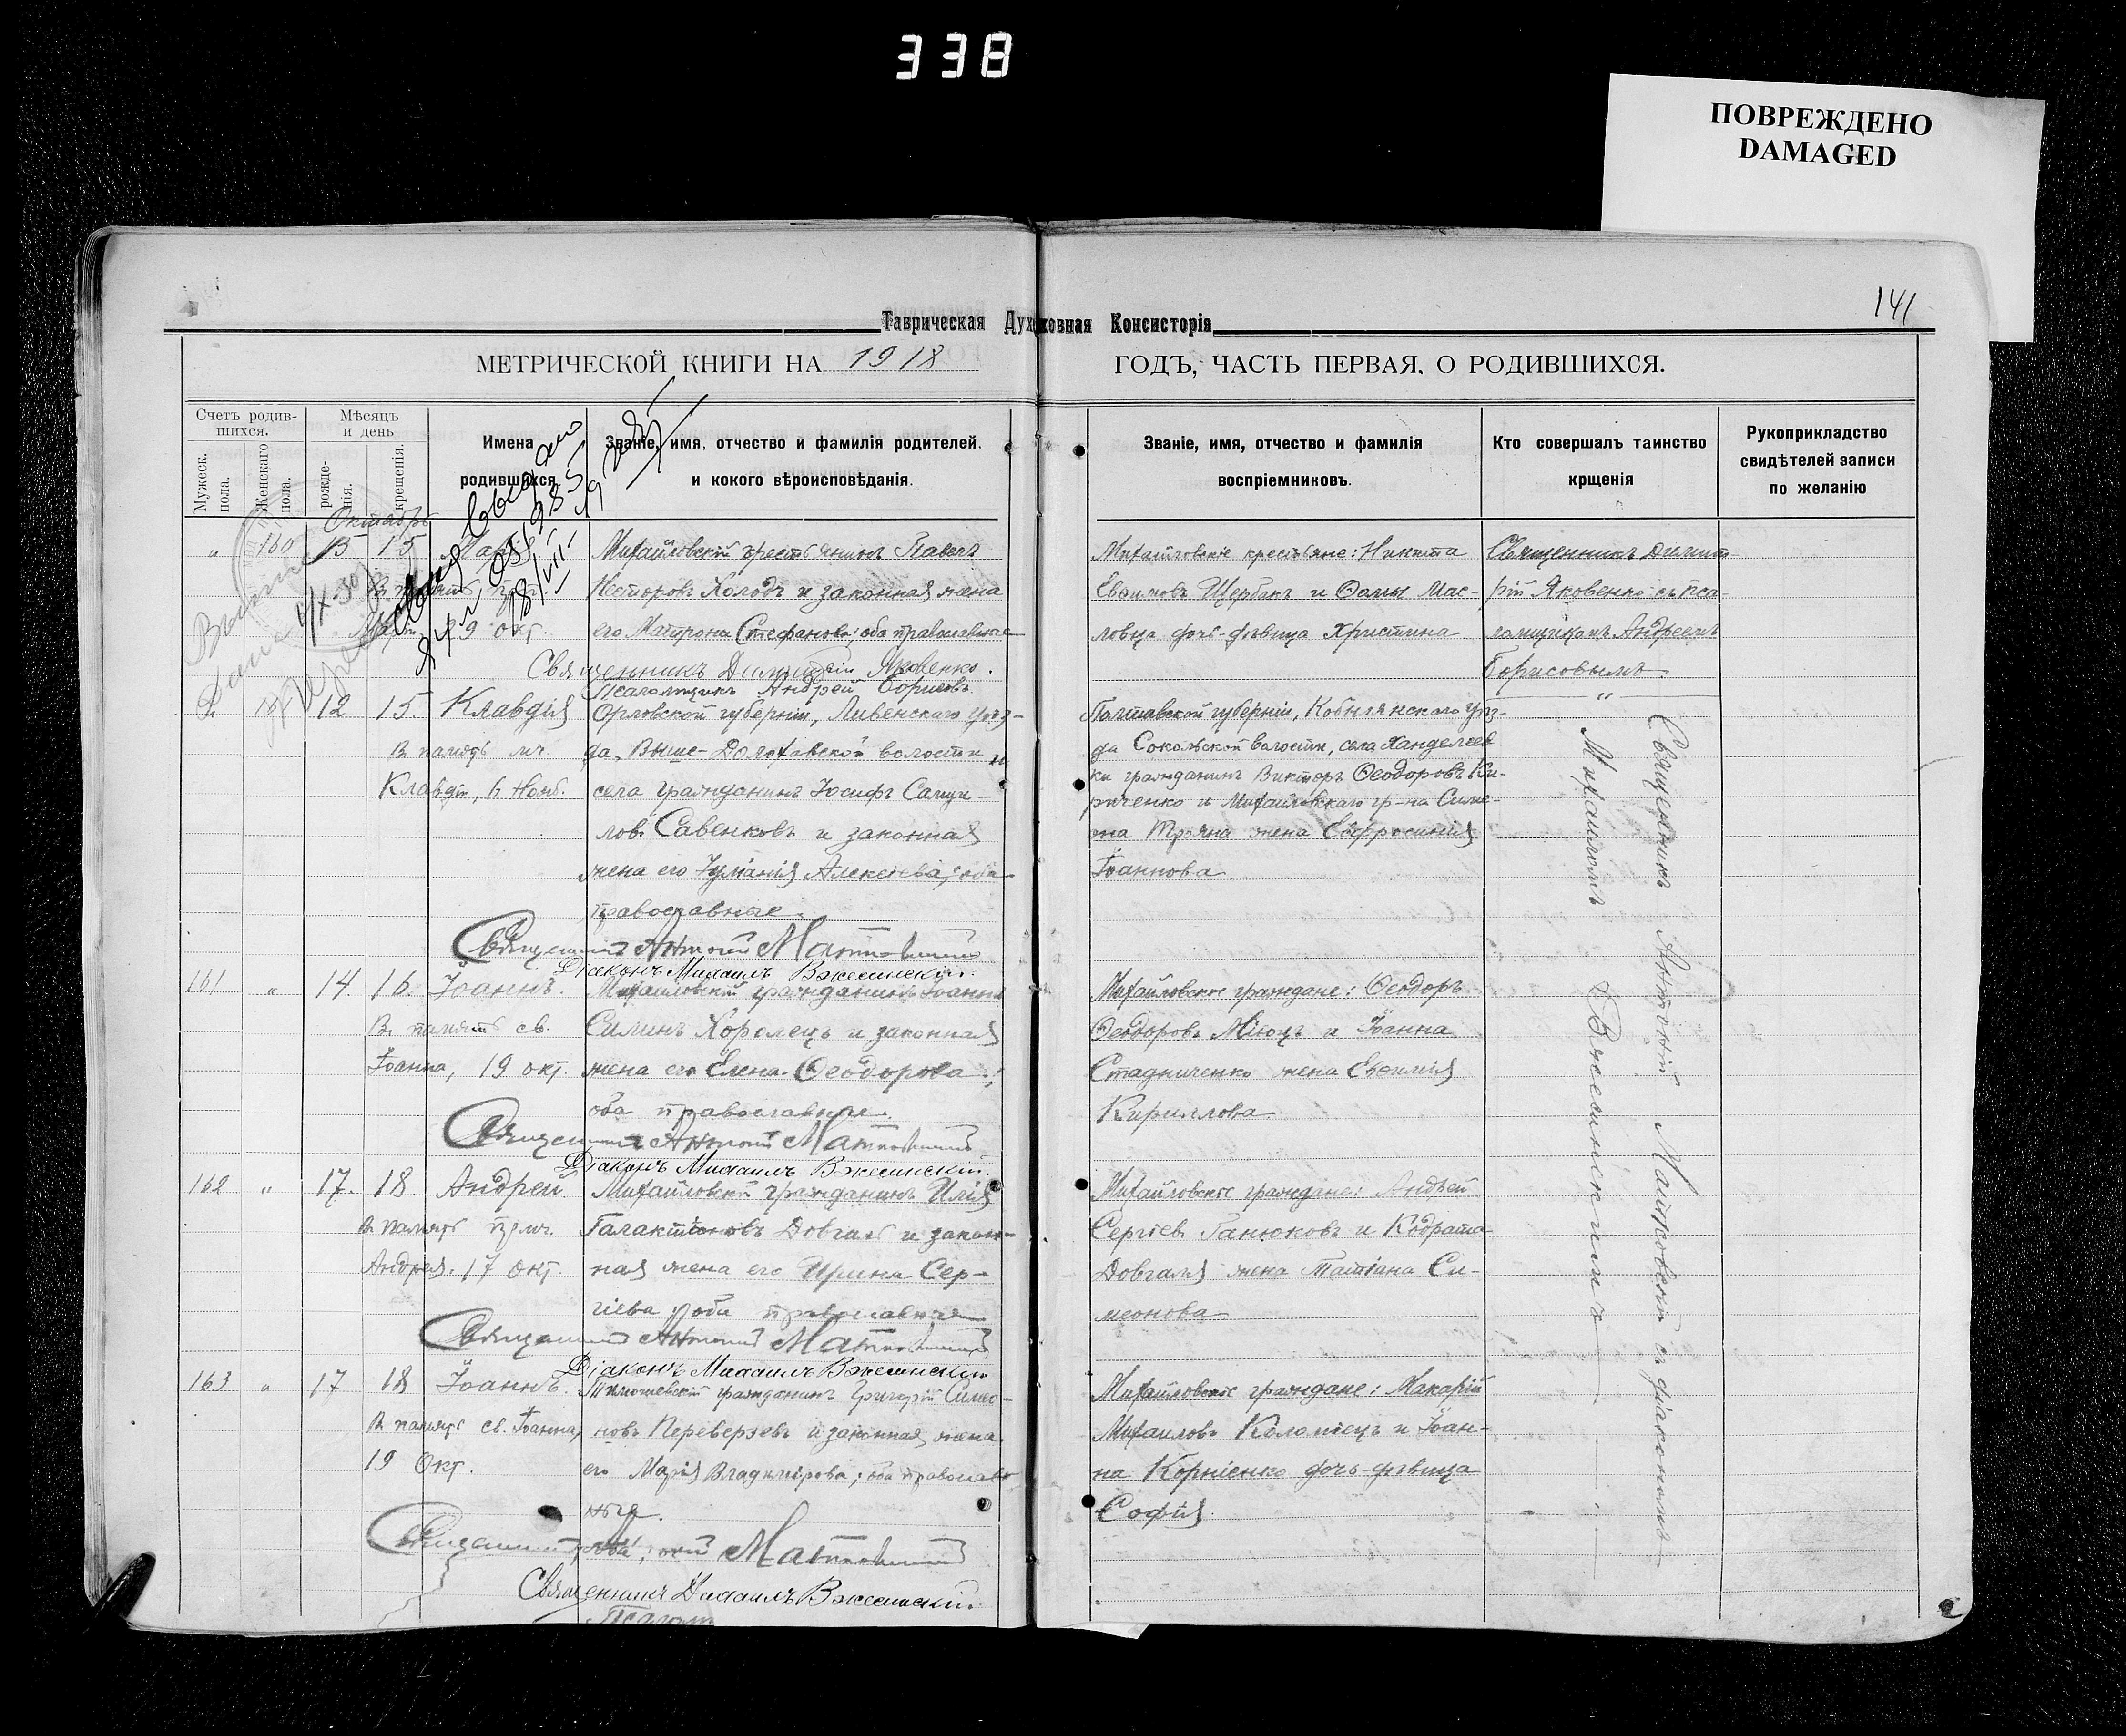 338
ПОВРЕЖДЕНО
DAMAGED
141
Таврическая Духовная Консисторія
МЕТРИЧЕСКОЙ КНИГИ НА 1918 ГОДЪ, ЧАСТЬ ПЕРВАЯ, О РОДИВШИХСЯ.
Счетъ родив-
шихся.
Мужеск. пола.
Женскаго пола.
Мѣсяцъ
и день
рожде-
нія.
крещенія.
Имена
родившихся.
Званіе, имя, отчество и фамилія родителей,
и кокого вѣроисповѣданія.
Званіе, имя, отчество и фамилія
воспріемниковъ.
Кто совершалъ таинство
крщенія
Рукоприкладство
свидѣтелей записи
по желанію
Октябрь
" 160 15 15
Михайловскій крестьянинъ Павелъ
Несторовъ Холодъ и законная жена
29 окт. его Матрона Стефанова; оба православные
Священникъ Димитрій Яковенко.
Псаломщикъ Андрей Борисовъ
Михайловскіе крестьяне: Никита
Евѳимовъ Щербакъ и Ѳомы Мас-
ловца дочь-дѣвица Христина
Священникъ Димит-
рій Яковенко съ пса-
ломщикомъ Андреемъ
Борисовымъ
12 15. Клавдія
Въ память мч.
Клавдіи, 6 Нояб.
Орловской губерніи, Ливенскаго уѣз-
да, Выше- волости и
села гражданинъ Іосифъ Самуи-
ловъ Савенковъ и законная
жена его Іуліанія Алексіева; оба
православные.
Священникъ Антоній Матковскій
Діаконъ Михаилъ Вжесинскій.
Полтавской губерніи, Кобелякскаго уѣз-
да Сокольской волости, села Ханделеев
ки гражданинъ Викторъ Ѳеодоровъ Ки-
риченко и Михайловскаго гр-на Симе-
она Трояна жена Евфросинія
Іоаннова
Священникъ Антоній Матковскій съ діакономъ
Михаиломъ Вжесинскимъ
161 " 14. 16. Іоаннъ.
Въ память св.
Іоанна, 19 окт.
Михайловскій гражданинъ Іоаннъ
Силинъ Королецъ и законная
жена его Елена Ѳеодорова;
оба православные.
Священникъ Антоній Матковскій
Діаконъ Михаилъ Вжесинскій.
Михайловскіе граждане: Ѳеодоръ
Ѳеодоровъ Міюцъ и Іоанна
Стадниченко жена Евѳимія
Кириллова
162 " 17. 18 Андрей
Въ память прмч.
Андрея. 17 окт.
Михайловскій гражданинъ Илія
Галактіоновъ Довгаль и закон-
ная жена его Ирина Сер-
гіева; оба православные
Священникъ Антоній Матковскій
Діаконъ Михаилъ Вжесинскій
Михайловскіе граждане: Андрей
Сергіевъ Ганюковъ и Кодрата
Довгаля жена Татіана Си-
меонова
163 " 17 18 Іоаннъ.
Въ память св. Іоанна,
19 Окт.
гражданинъ Григорій Симео-
новъ Переверзевъ и законная жена
его Марія Владимірова; оба православ
ные.
Матковскій
Священникъ Михаилъ Вжесинскій.
Михайловскіе граждане: Макарій
Михаиловъ Коломіецъ и Іоан-
на Корніенко дочь-дѣвица
Софія.